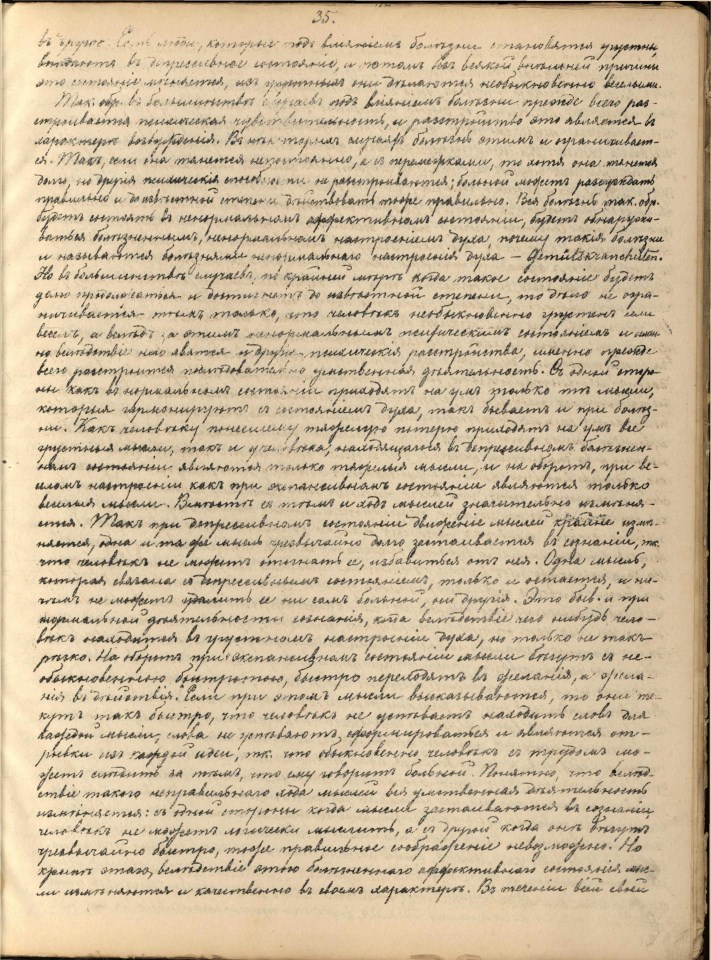 35.
въ другое. Есть люди, которые подъ вліяніемъ болѣзни становятся грустны,
впадаютъ въ депрессивное состояніе, и потомъ безъ всякой внѣшней причины
это состояніе мѣняется, изъ грустныхъ они дѣлаются необыкновенно веселыми.
Так. обр. въ большинствѣ случаевъ подъ вліяніемъ болѣзни прежде всего раз-
страивается психическая чувствительность, и разстройство это является въ
характерѣ возбужденія. Въ нѣкоторыхъ случаяхъ болѣзнь этимъ и ограничивает-
ся. Такъ, если она тянется непостоянно, а съ перемежками, то хотя она тянется
долго, но другія психическія способности не разстраиваются; больной можетъ разсуждать
правильно и до извѣстной степени дѣйствовать тоже правильно. Вся болѣзнь так. обр.
будетъ состоять въ ненормальномъ аффективномъ состояніи, будетъ обнаружи-
ваться болѣзненнымъ, ненормальнымъ настроеніемъ духа, почему такія болѣзни
и называются болѣзнями ненормальнаго настроенія духа — Gemütskrankheiten.
Но въ большинствѣ случаевъ, по крайней мѣрѣ когда такое состояніе будетъ
долго продолжаться и достигнетъ до извѣстной степени, то дѣло не огра-
ничивается тѣмъ только, что человѣкъ необыкновенно грустенъ или
веселъ, а вслѣдъ за этимъ ненормальнымъ психическимъ состояніемъ и имен-
но вслѣдствіе его явятся и другія психическія разстройства, именно прежде
всего разстроится послѣдовательно умственная дѣятельность. Съ одной сторо-
ны какъ въ нормальномъ состояніи приходятъ на умъ только тѣ мысли,
которыя гармонируютъ съ состояніемъ духа, такъ бываетъ и при болѣз-
ни. Какъ человѣку понесшему тяжелую потерю приходятъ на умъ всѣ
грустныя мысли, такъ и у человѣка, находящагося въ депрессивномъ болѣзнен-
номъ состояніи являются только тяжелыя мысли, и на оборотъ, при ве-
селомъ настроеніи какъ при экспансивномъ состояніи являются только
веселыя мысли. Вмѣстѣ съ тѣмъ и ходъ мыслей значительно измѣня-
ется. Такъ при депрессивномъ состояніи движеніе мыслей крайне измѣ-
няется, одна и та же мысль чрезвычайно долго застаивается въ сознаніи, тк.
что человѣкъ не можетъ отогнать ее, избавиться отъ нея. Одна мысль,
которая связана съ депрессивнымъ состояніемъ, только и остается, и ни-
чѣмъ не можетъ удалить ее ни самъ больной, ни другія. Это быв. и при
нормальной дѣятельности сознанія, кгда вслѣдствіе чего нибудь чело-
вѣкъ находится въ грустномъ настроеніи духа, но только не такъ
рѣзко. На оборотъ при экспансивномъ состояніи мысли бѣгутъ съ не-
обыкновенною быстротою, быстро переходятъ въ желанія, а жела-
нія въ дѣйствія. Если при этомъ мысли высказываются, то они те-
кутъ такъ быстро, что человѣкъ не успѣваетъ находить словъ для
каждой мысли, слова не успѣваютъ формироваться и являются от-
рывки изъ каждой идеи, тк. что обыкновенно человѣкъ съ трудомъ мо-
жетъ слѣдить за тѣмъ, что ему говоритъ больной. Понятно, что вслѣд-
ствіе такого неправильнаго хода мыслей вся умственная дѣятельность
измѣняется: съ одной стороны когда мысли застаиваются въ сознаніи,
человѣкъ не можетъ логически мыслить, а съ другой когда онѣ бѣгутъ
чрезвычайно быстро, тоже правильное соображеніе невозможно. Но
кромѣ этого, вслѣдствіе этого болѣзненнаго аффективнаго состоянія, мыс-
ли измѣняются и качественно въ своемъ характерѣ. Въ теченіи всей своей